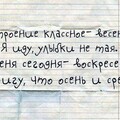 троение классное- весен
Я иду, улыбки не тая.
еня сегодня- воскресе
игу, что осень и сре